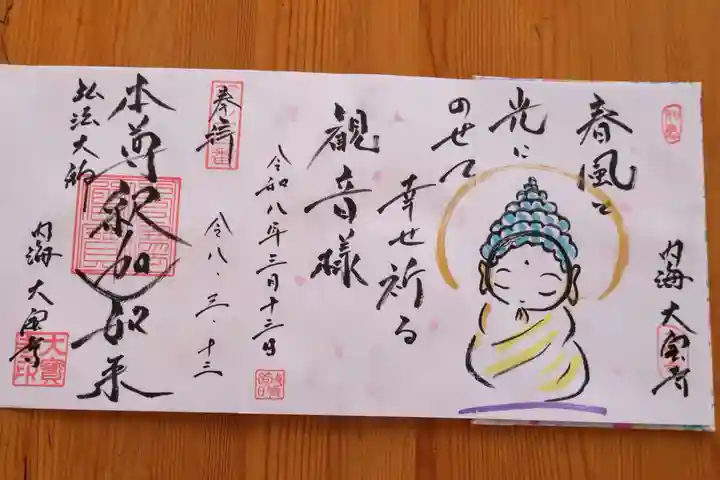 春風と
光に
のせて
幸せ祈る
観音様
内海 大宝寺
令和八年三月十三日
奉拝
令八・三・十三
本尊釈迦如来
弘法大師
内海 大宝寺
大寳